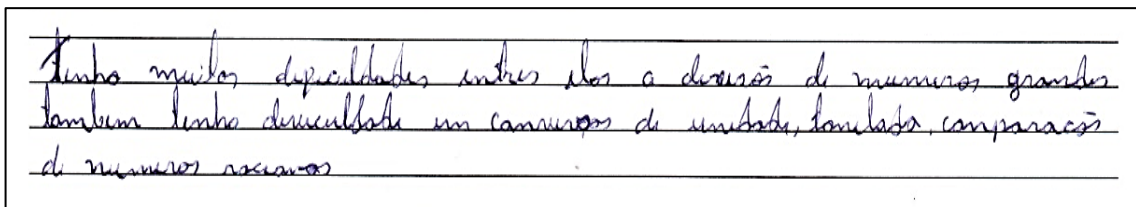 Tenho muitas dificuldades entres elas a divisão de numeros grandes
tambem tenho dificuldade em conversão de unidade, tonelada, comparação
de numeros racionas